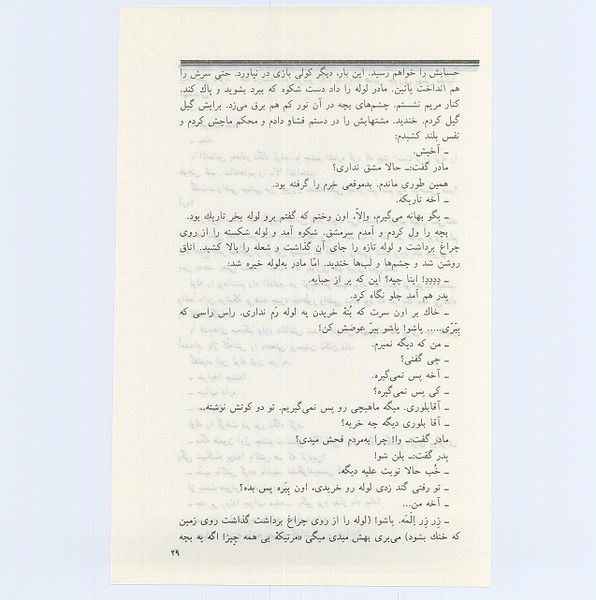 حسابش را خواهم رسید. این بار، دیگر کولی بازی در نیاورد. حتی سرش را
هم انداخت پائین. مادر لوله را داد دست شکوه که ببرد بشوید و پاک کند.
کنار مریم نشستم. چشم‌های بچه در آن نور کم هم برق می‌زد. برایش گیل
گیل کردم. خندید. مشتهایش را در دستم فشار دادم و محکم ماچش کردم و
نفس بلند کشیدم:
ـ آخیش.
مادر گفت:ـ حالا مشق نداری؟
همین طوری ماندم. بدموقعی خِرم را گرفته بود.
ـ آخه تاریکه.
ـ بگو بهانه می‌گیرم، والاّ، اون وختم که گفتم برو لوله بخر تاریک بود.
بچه را ول کردم و آمدم سرمشق. شکوه آمد و لوله شکسته را از روی
چراغ برداشت و لوله تازه را جای آن گذاشت و شعله را بالا کشید. اتاق
روشن شد و چشم‌ها و لب‌ها خندید. امّا مادر به‌لوله خیره شد:
ـ دِدِدِدِ! اینا چیه؟ این که پر از حبابه.
پدر هم آمد جلو نگاه کرد.
ـ خاک بر اون سرت که عُنْهٔ خریدن یه لوله رَم نداری. راس راسی که
پِپّزی..... پاشو! پاشو ببر عوضش کن!
ـ من که دیگه نمیرم.
ـ چی گفتی؟
ـ آخه پس نمی‌گیره.
ـ کی پس نمی‌گیره؟
ـ آقابلوری. میگه ماهیچی رو پس نمی‌گیریم. تو دو کونش نوشته..
ـ آقا بلوری دیگه چه خریه؟
مادر گفت:ـ وا! چرا یه‌مردم فحش میدی؟
پدر گفت:ـ بلن شو!
ـ خُب حالا تویت علیه دیگه.
ـ تو رفتی گند زدی لوله رو خریدی، اون پِبَره پس بده؟
ـ آخه من...
ـ زِر زِر اِلَمّه. پاشو! (لوله را از روی چراغ برداشت گذاشت روی زمین
که خنک بشود) می‌بری بهش میدی میگی «مرتیکهٔ بی همه چیز! اگه یه بچه
۲۹